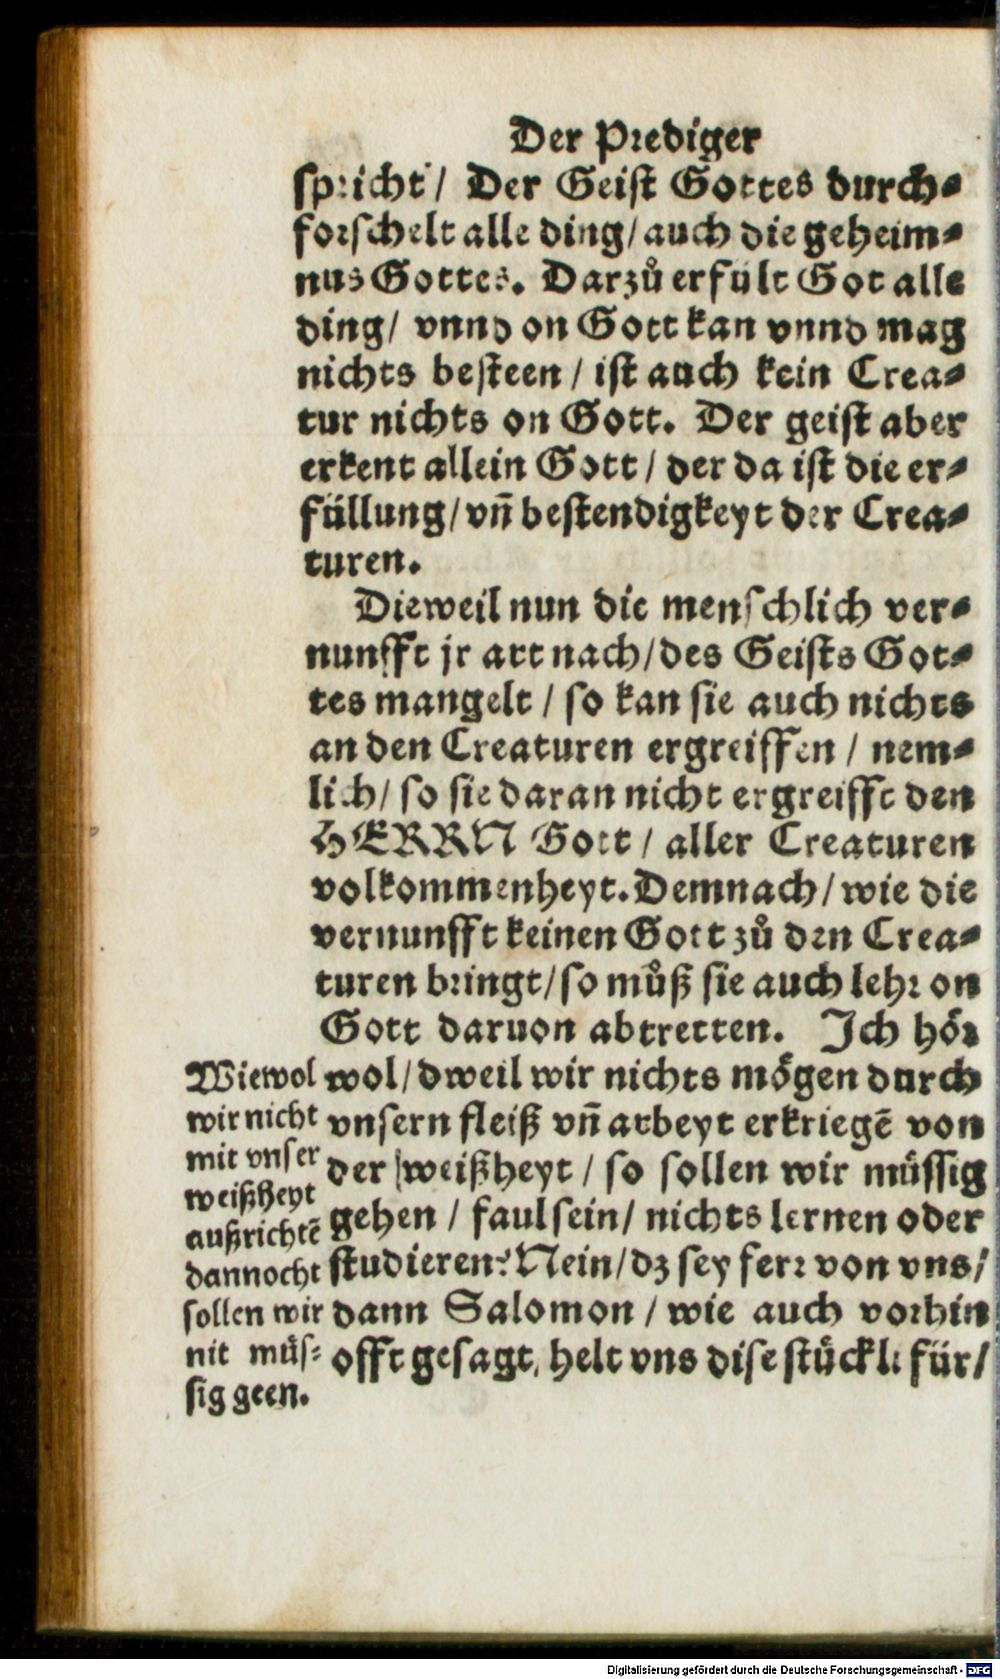 Der Prediger
spricht / Der Geist Gottes durch⸗
forschelt alle ding / auch die geheim⸗
nus Gottes. Darzů erfült Got alle
ding / vnnd on Gott kan vnnd mag
nichts besteen / ist auch kein Crea⸗
tur nichts on Gott. Der geist aber
erkent allein Gott / der da ist die er⸗
füllung / vñ bestendigkeyt der Crea⸗
turen.
Dieweil nun die menschlich ver⸗
nunfft jr art nach / des Geists Got⸗
tes mangelt / so kan sie auch nichts
an den Creaturen ergreiffen / nem⸗
lich / so sie daran nicht ergreifft den
HERRN Gott / aller Creaturen
volkommenheyt. Demnach / wie die
vernunfft keinen Gott zů den Crea⸗
turen bringt / so můß sie auch lehr on
Gott daruon abtretten. Ich hör
wol / dweil wir nichts mögen durch
vnsern fleiß vñ arbeyt erkriegẽ von
der weißheyt / so sollen wir müssig
gehen / faul sein / nichts lernen oder
studieren? Nein / dz sey ferr von vns /
dann Salomon / wie auch vorhin
offt gesagt, helt vns dise stückli für /
Wiewol
wir nicht
mit vnser
weißheyt
außrichtẽ
dannocht
sollen wir
nit müs⸗
sig geen.
Digitalisierung gefördert durch die Deutsche Forschungsgemeinschaft - DFG